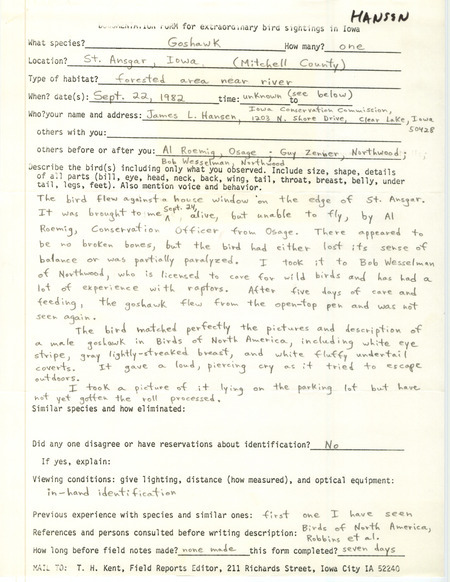 HANSEN
DOCUMENTATION FORM for extraordinary bird sightings in Iowa
What species? Goshawk How many? one
Location? St. Ansgar, Iowa (Mitchell County)
Type of habitat? forested area near river
When? date(s): Sept. 22, 1982 time: unknown (see below) to
Who? your name and address: James L. Hansen, Iowa Conservation Commission, 1203 N. Shore Drive, Clear Lake, Iowa 50428
others with you:
others before or after you: Al Roemig, Osage - Guy Zenner, Northwood;
Bob Wesselman, Northwood
Describe the bird(s) including only what you observed. Include size, shape, details
of all parts (bill, eye, head, neck, back, wing, tail, throat, breast, belly, under
tail, legs, feet). Also mention voice and behavior.
The bird flew against a house window on the edge of St. Ansgar.
It was brought to me Sept. 24, alive, but unable to fly, by Al
Roemig, Conservation Officer from Osage. There appeared to
be no broken bones, but the bird had either lost its sense of
balance or was partially paralyzed. I took it to Bob Wesselman
of Northwood, who is licensed to care for wild birds and has had a
lot of experience with raptors. After five days of care and
feeding, the goshawk flew from the open-top pen and was not
seen again.
The bird matched perfectly the pictures and description of
a male goshawk in Birds of North America, including white eye
stripe, gray lightly-streaked breast, and white fluffy undertail
coverts. It gave a loud, piercing cry as it tried to escape
outdoors.
I took a picture of it lying on the parking lot but have
not yet gotten the roll processed.
Similar species and how eliminated:
Did any one disagree or have reservations about identification? No
If yes, explain:
Viewing conditions: give lighting, distance (how measured), and optical equipment:
in-hand identification
Previous experience with species and similar ones: first one I have seen
References and persons consulted before writing description: Birds of North America,
Robbins et al.
How long before field notes made? none made this form completed? seven days
MAIL TO: T. H. Kent, Field Reports Editor, 211 Richards Street, Iowa City IA 52240